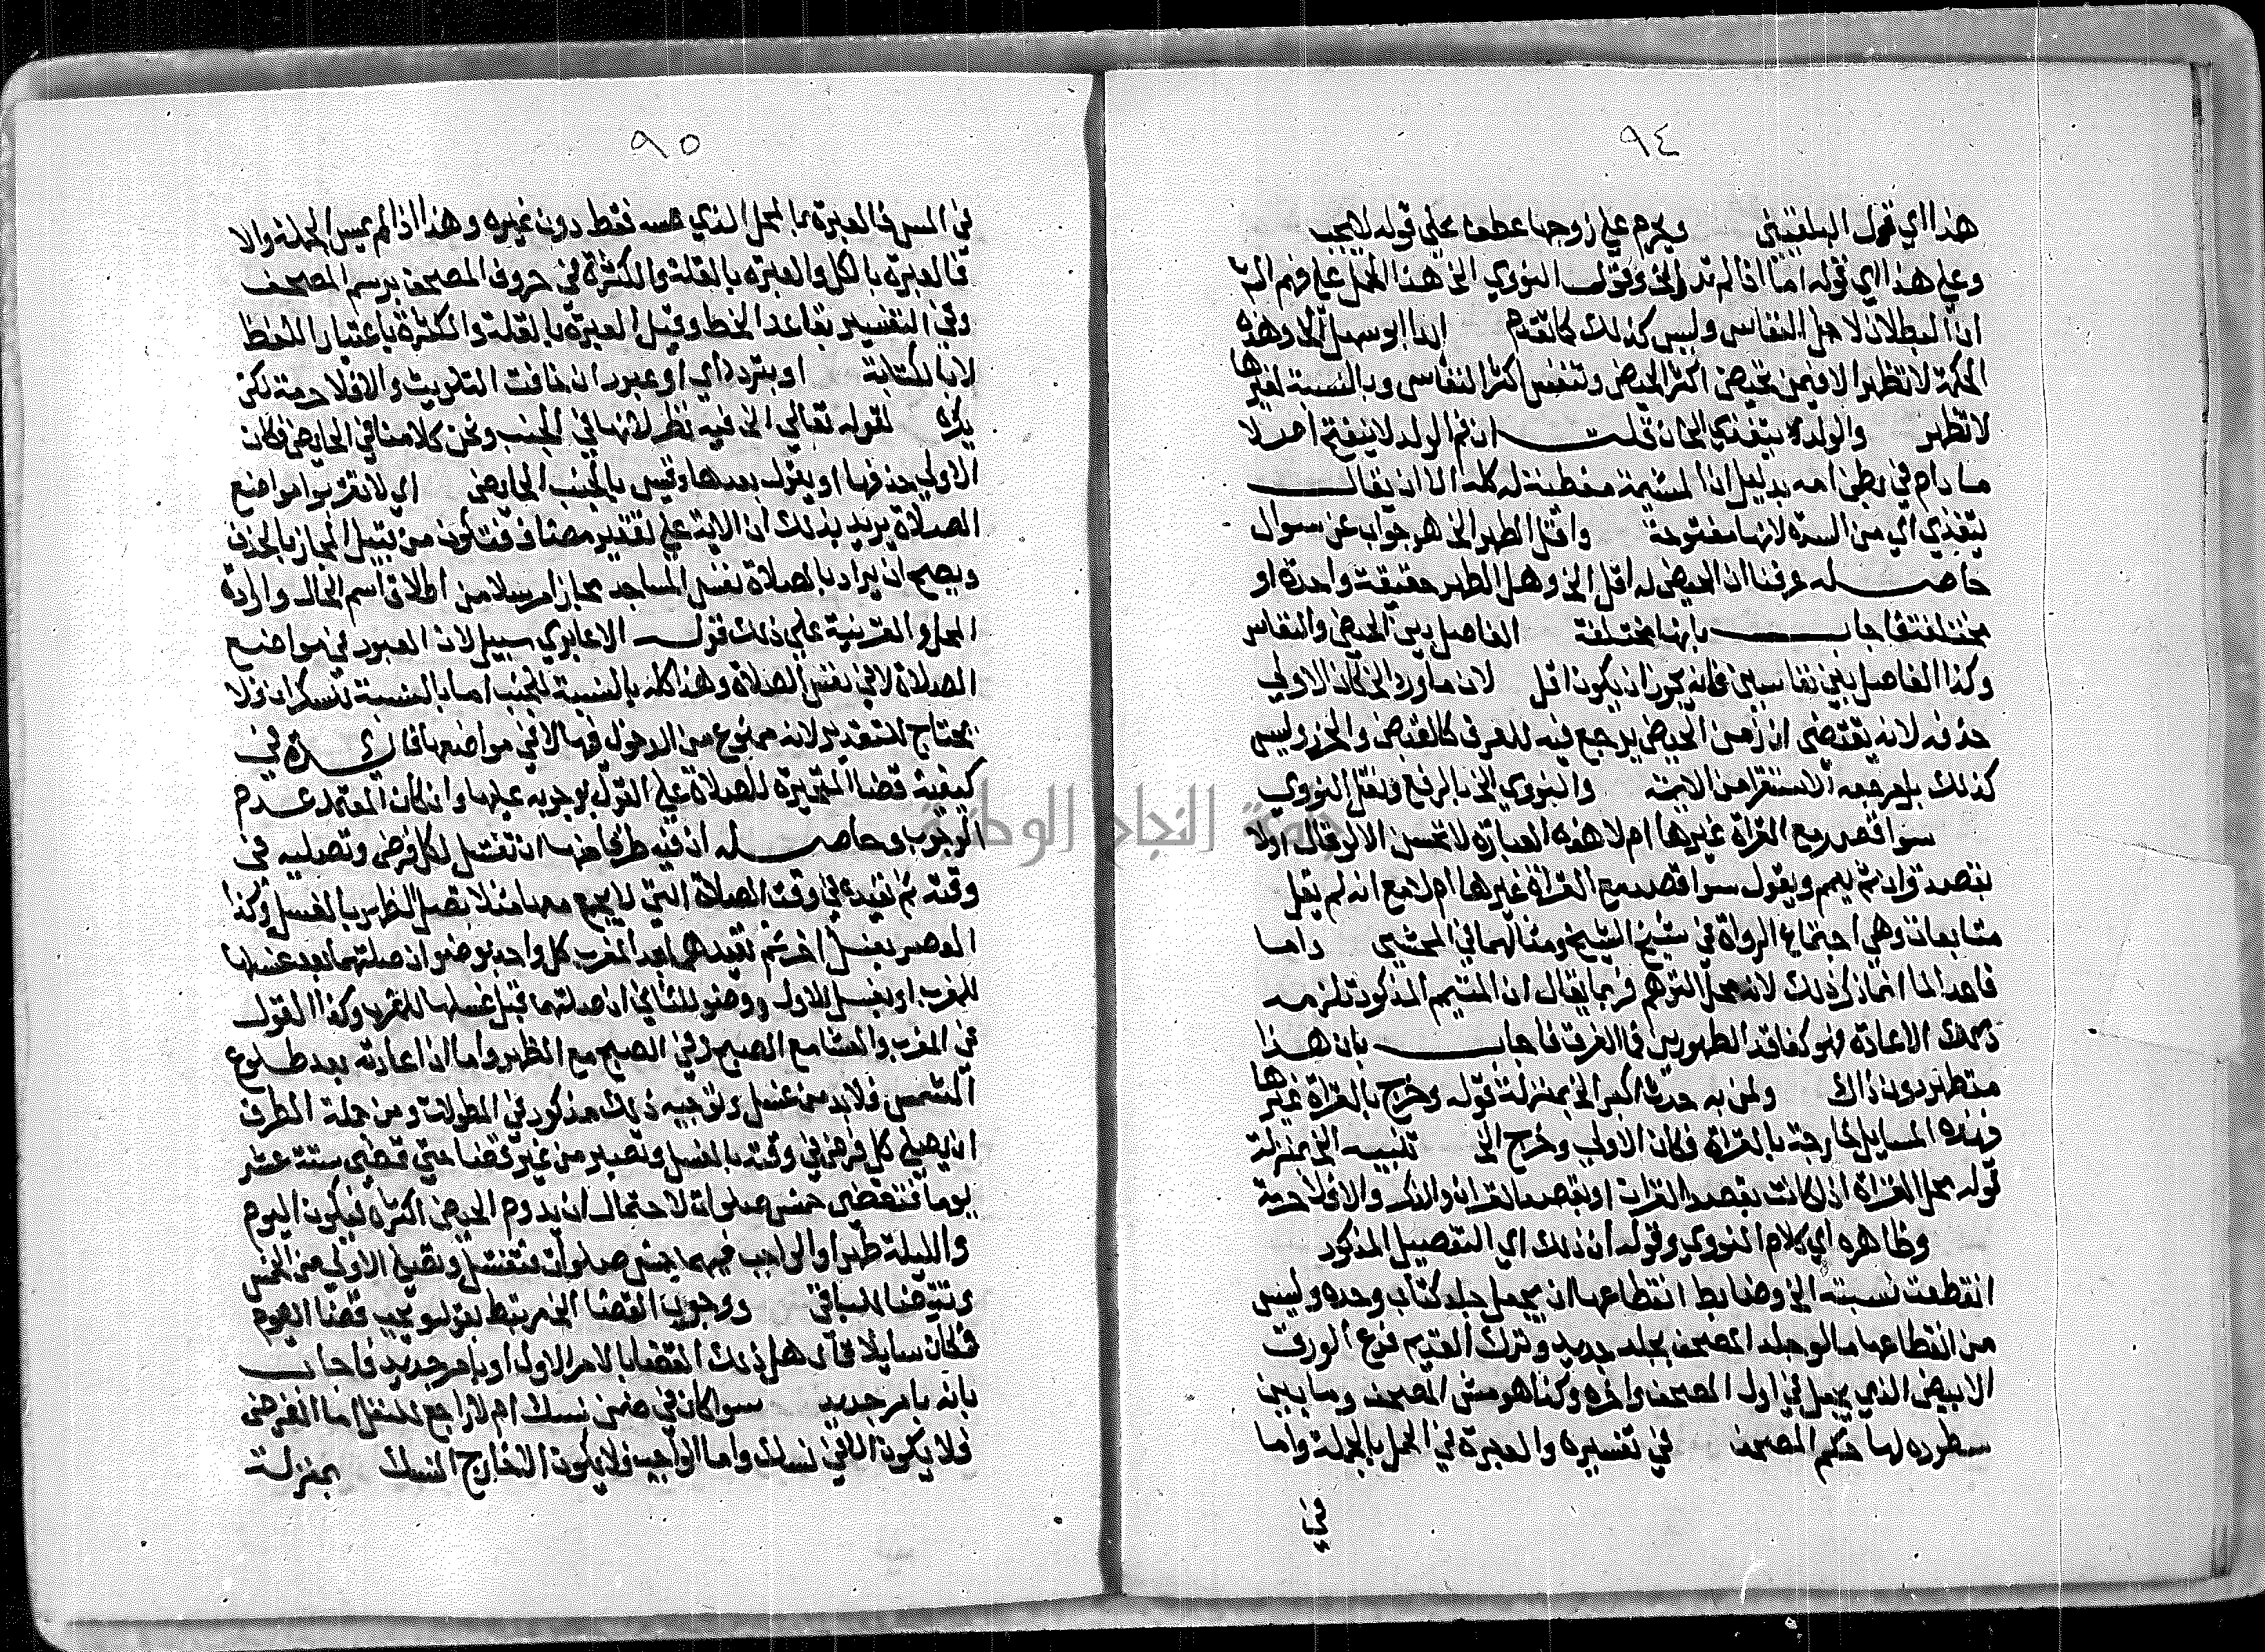 ٩٤
هذا اي قول البلقيني ويحرم علي زوجها عطف علي قوله لا يجب
وعلي هذا اي قوله اما اذا لم تر الخ وقول النووي الخ هذا المحل علي فهم
ان البطلان لاجل النفاس وليس كذلك كما تقدم ابوسهل الخ وهذه
الحكمة لا تظهر الا فيمن تحيض اكثر الحيض وتنفس اكثر النفاس وبالنسبة لغيرها
لا تظهر والولد يتغذي الخ ان قلت ان فم الولد لا ينفتح اصلا
ما دام في بطن امه بدليل ان المشيمة مغطية له كله الا ان يقال
يتغذي اي من السرة لانها مفتوحة واقل الطهر الخ هو جواب عن سوال
حاصله عرفنا ان الحيض له اقل الخ وهل الطهر حقيقة واحدة او
مختلفة فاجاب بانها مختلفة الفاصل بين الحيض والنفاس
وكذا الفاصل بين نفاسين فانه يجوز ان يكون اقل لان ما ورد الخ كان الاولي
حذفه لانه يقتضي ان زمن الحيض يرجع فيه للعرف كالقبض والحرز وليس
كذلك بل مرجعه الاستقرا من الايمة والنووي الخ بالرفع ونقل النووي
سوا قصد مع القراة غيرها ام لا هذه العبارة لا تحسن الا لو قال اولا
بقصد قران ثم يعمم ويقول سوا قصد مع القراة غيرها ام لا مع انه لم يقل
متابعات وهي اجتماع الرواة في شيخ الشيخ ومثالهما في المحشي واما
فاقد الما انما ذكر ذلك لانه محل التوهم فربما يقال ان المتيمم المذكور تلزمه
كذلك الاعادة فهو كفاقد الطهورين فما الفرق فاجاب بان هذا
متطهر دون ذاك ولمن به حدث اكبر الخ بمنزلة قوله وخرج بالقراة غيرها
فهذه المسايل خارجة بالقراة فكان الاولي وخرج الخ تنبيه الخ بمنزلة
قوله محل القراة اذا كانت بقصد القران او بقصد القران والذكر والا فلا حرمة
وظاهره اي كلام النووي وقوله ان ذلك اي التفصيل المذكور
انقطعت نسبته الخ وضابط انقطاعها ان يجعل جلد كتاب وحده وليس
من انقطاعها ما لو جلد المصحف بجلد جديد وترك القديم فرع الورق
الابيض الذي يجعل في اول المصحف واخره وكذا هوامش المصحف وما بين
سطوره لها حكم المصحف في تفسيره والعبرة في الحمل بالجملة واما
في
٩٥
في المس فالعبرة بالمحل الذي مسه فقط دون غيره وهذا اذا لم يمس الجملة والا
فالعبرة بالكل والعبرة بالقلة والكثرة في حروف المصحف برسم المصحف
وفي التفسير بقاعد الخط وقيل العبرة بالقلة والكثرة باعتبار اللفظ
لا بالكتابة او بتردد اي او عبور ان خافت التلويث والا فلا حرمة لكن
يكره لقوله تعالي الخ فيه نظر لانها في الجنب ونحن كلامنا في الحايض فكان
الاولي حذفها او يقول بعدها وقيس بالجنب الحايض اي لا تقربوا مواضع
الصلاة يريد بذلك ان الاية علي تقدير مضاف فتكون من قبيل المجاز بالحذف
ويصح ان يراد بالصلاة نفس المساجد مجازا مرسلا من اطلاق اسم الحال وارادة
المحل والقرينة علي ذلك قوله الا عابري سبيل لان العبور في مواضع
الصلاة لا في نفس الصلاة وهذا كله بالنسبة للجنب اما بالنسبة للسكران فلا
يحتاج للتقدير لانه ممنوع من الدخول فيها لا في مواضعها فايدة في
كيفية قضا المتحيرة للصلاة علي القول بوجوبه عليها وان كان المعتمد عدم
الوجوب وحاصله ان فيه طرقا منها ان تغتسل لكل فرض وتصليه في
وقته ثم تعيده في وقت الصلاة التي لا يجمع معها مثلا تصلي الظهر بالغسل وكذا
العصر بغسل اخر ثم تعيدهما بعد المغرب كل واحد بوضو ان صلتهما بعد غسلها
للمغرب او بغسل للاول ووضو للثاني ان صلتهما قبل غسلها للمغرب وكذا القول
في المغرب والعشا مع الصبح وفي الصبح مع الظهر واما ان اعادته بعد طلوع
الشمس فلا بد من غسل وتوجيه ذلك مذكور في المطولات ومن جملة الطرق
ان يصلي كل فرض في وقته بالغسل وتصبر من غير قضا حتي تمضي ستة عشر
يوما فتقضي خمس صلوات لاحتمال ان يدوم الحيض اكثره فيكون اليوم
والليلة طهرا والواجب فيهما خمس صلوات فتغتسل وتصلي الاولي من الخمس
وتتوضا للباقي ووجوب القضا الخ مرتبط بقوله ويجب قضا الصوم
فكان سايلا قال هل ذلك القضا بالامر الاول او بامر جديد فاجاب
بانه بامر جديد سوا كان في ضمن نسك ام لا راجع للنفل اما الفرض
فلا يكون الا في نسك واما الواجب فلا يكون الا خارج النسك بمنزلة